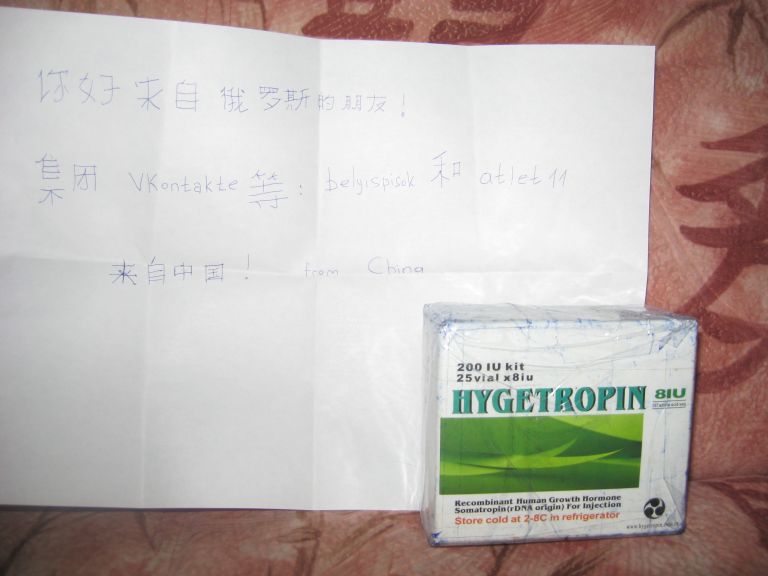 你好来自俄罗斯的朋友!
集团 VKontakte等: belyispisok 和 atlet11
来自中国! from China
200 IU kit
25vial x8iu
HYGETROPIN 8IU
Recombinant Human Growth Hormone
Somatropin(rDNA origin) For Injection
Store cold at 2-8C in refrigerator